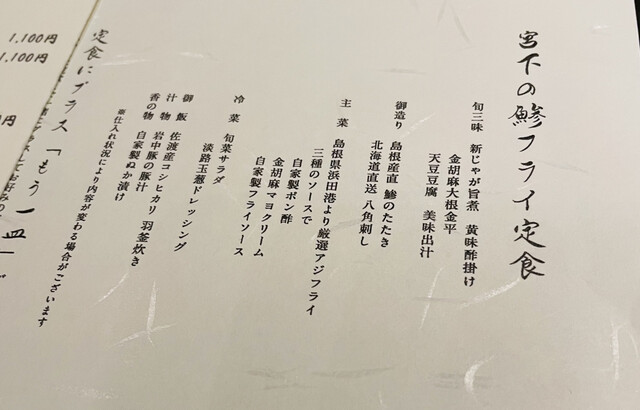 宮下の鯵フライ定食
旬三味 新じゃが旨煮 黄味酢掛け
金胡麻大根金平
天豆豆腐 美味出汁
御造り 島根産直 鯵のたたき
北海道直送 八角刺し
主菜 島根県浜田港より厳選アジフライ
三種のソースで
自家製ポン酢
金胡麻マヨクリーム
自家製フライソース
冷菜 旬菜サラダ
淡路玉葱ドレッシング
御飯 佐渡産コシヒカリ 羽釜炊き
汁物 岩中豚の豚汁
香の物 自家製ぬか漬け
※仕入れ状況により内容が変わる場合がございます
定食にプラス「もう一皿」
1,100円
1,100円